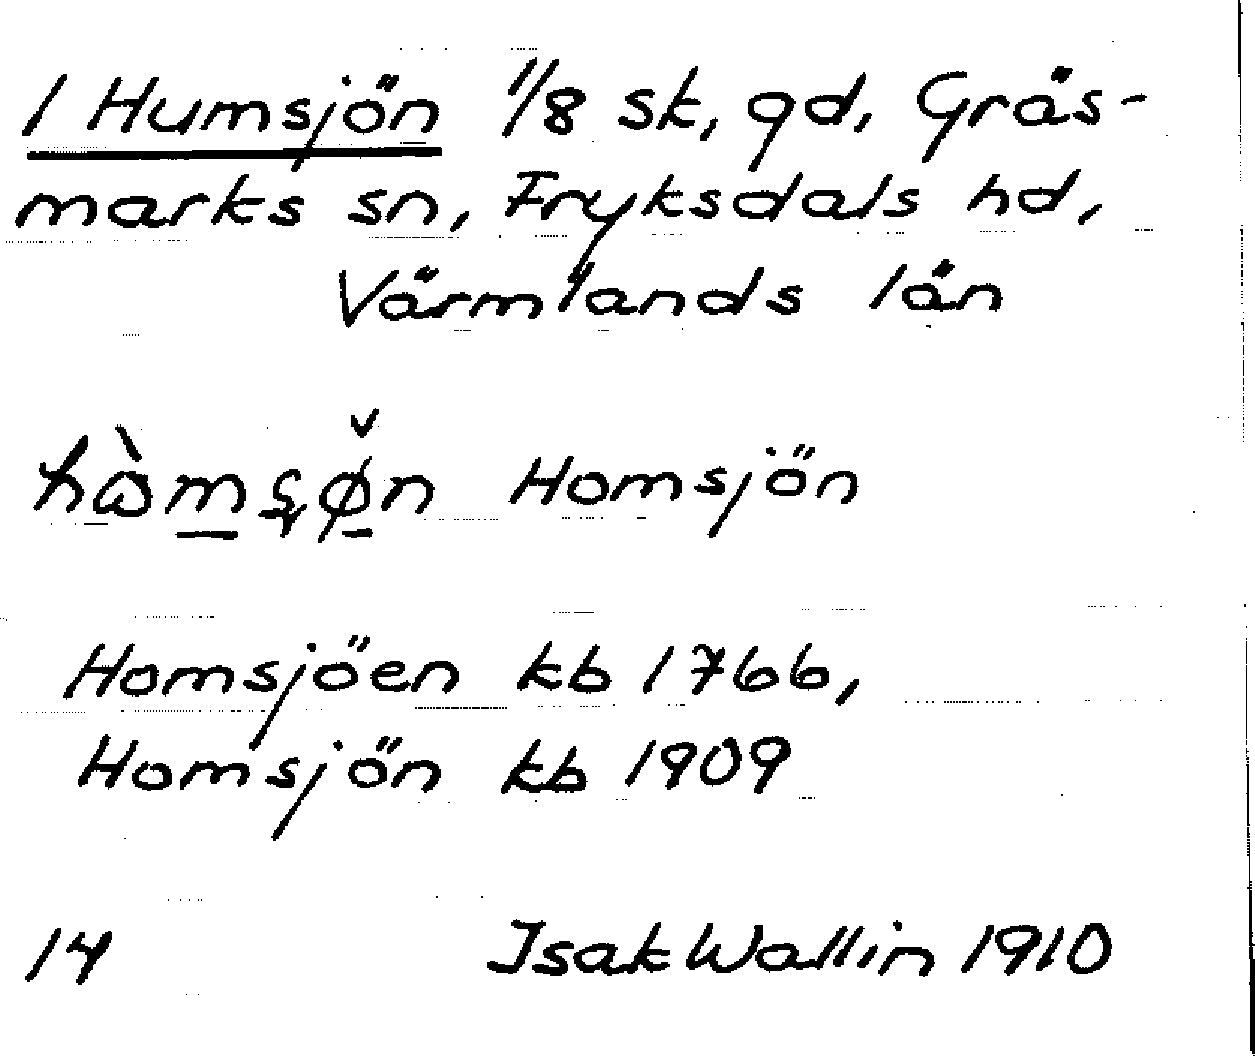 1 Humsjön 1/8 sk, gd, Gräs-
marks sn, Fryksdals hd,
Värmlands län
Homsjön
Homsjöen kb 1766,
Homsjön kb 1909
14 Isak Wallin 1910